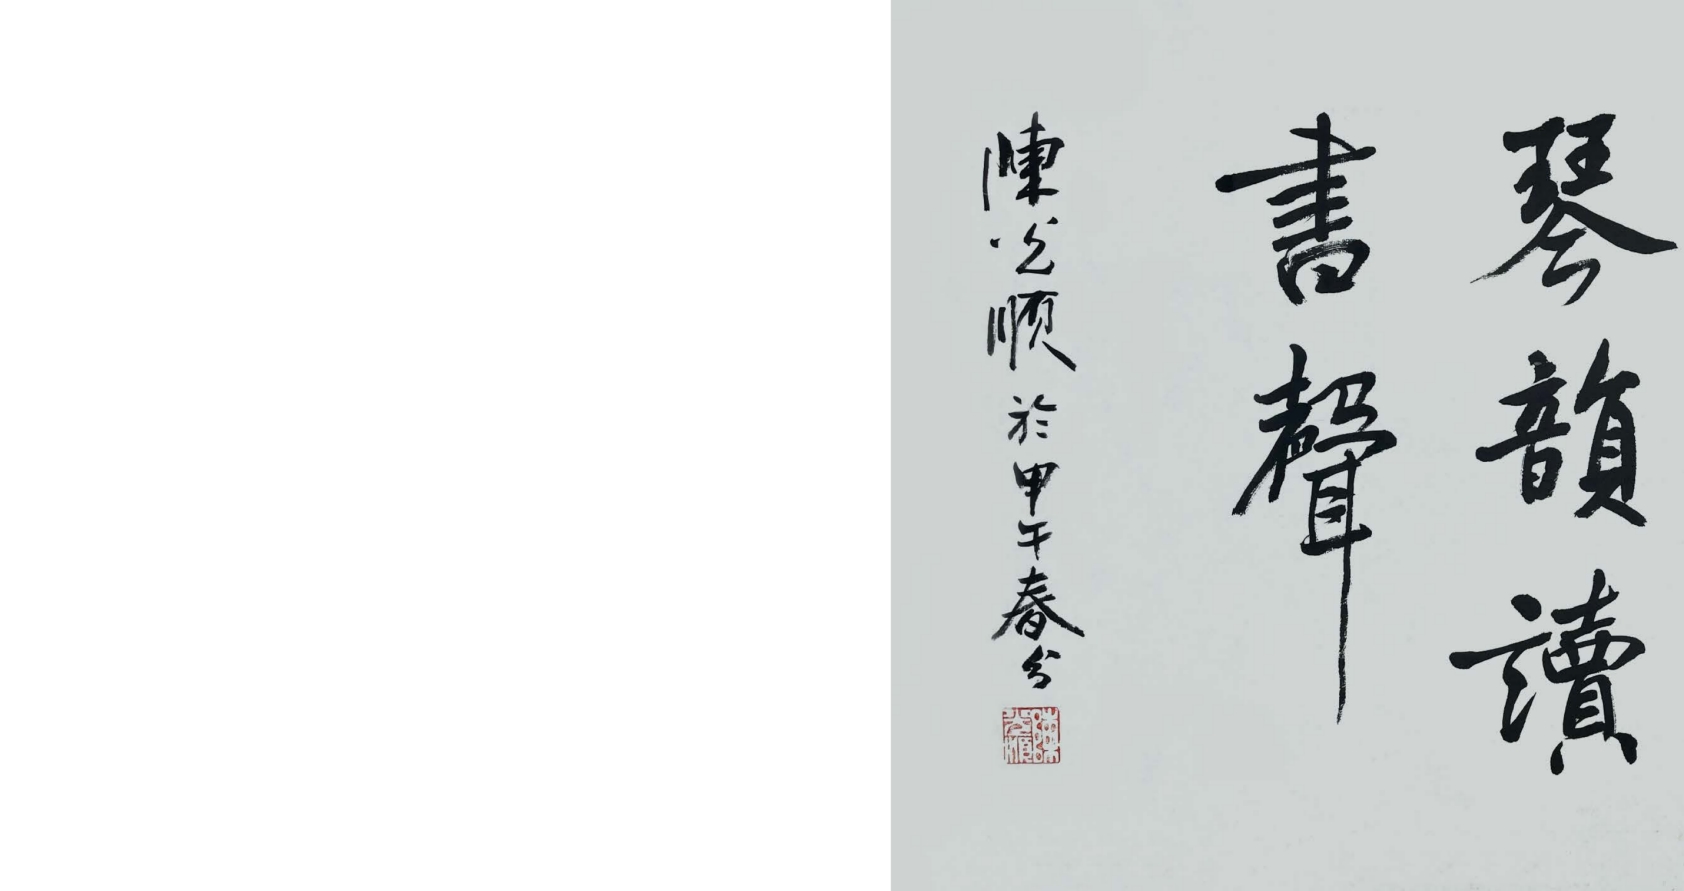 琴韻讀
書聲
陳光順於甲午春分
陳光順